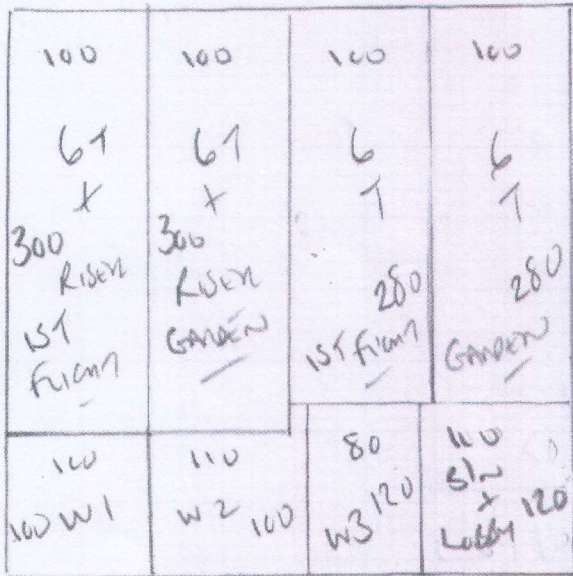 100
6T
+
300
RISER
1ST
FLIGHT
100
6T
+
300
RISER
GARDEN
100
6
T
280
1ST FLIGHT
100
6
T
280
GARDEN
100
100 W1
110
W2 100
80
W3 120
110
+
LOBBY 120